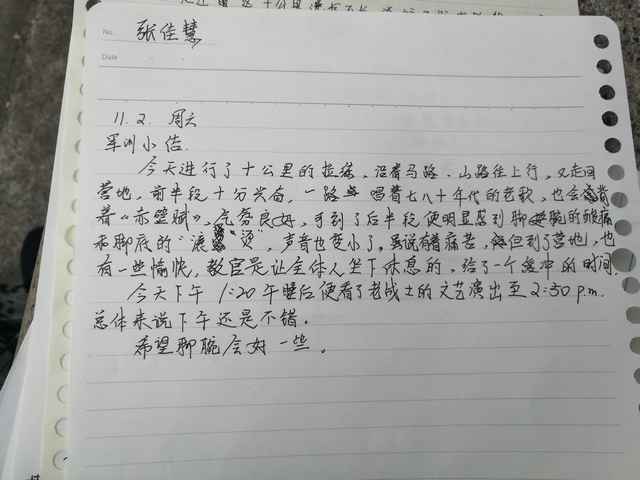 No. 张佳慧
Date
11.2. 周六
军训小结.
今天进行了十公里的拉练,沿着马路、山路往上行,又走回
营地,前半段十分兴奋,一路唱着七八十年代的老歌,也会背
着《赤壁赋》,气氛良好,可到了后半段便明显感到脚腕的酸痛
和脚底的“滚烫”,声音也变小了,虽说有着痛苦,但到了营地,也
有一些愉快,教官是让全体人坐下休息的,给了一个缓冲的时间.
今天下午1:20午睡后便看了老战士的文艺演出至2:50 p.m.
总体来说下午还是不错.
希望脚腕会好一些。